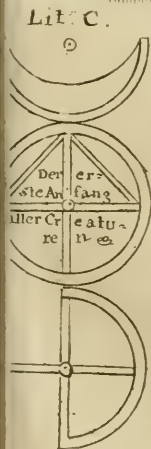 Lit: C.
Der er=
ste An fang
aller Cr eatu=
re n